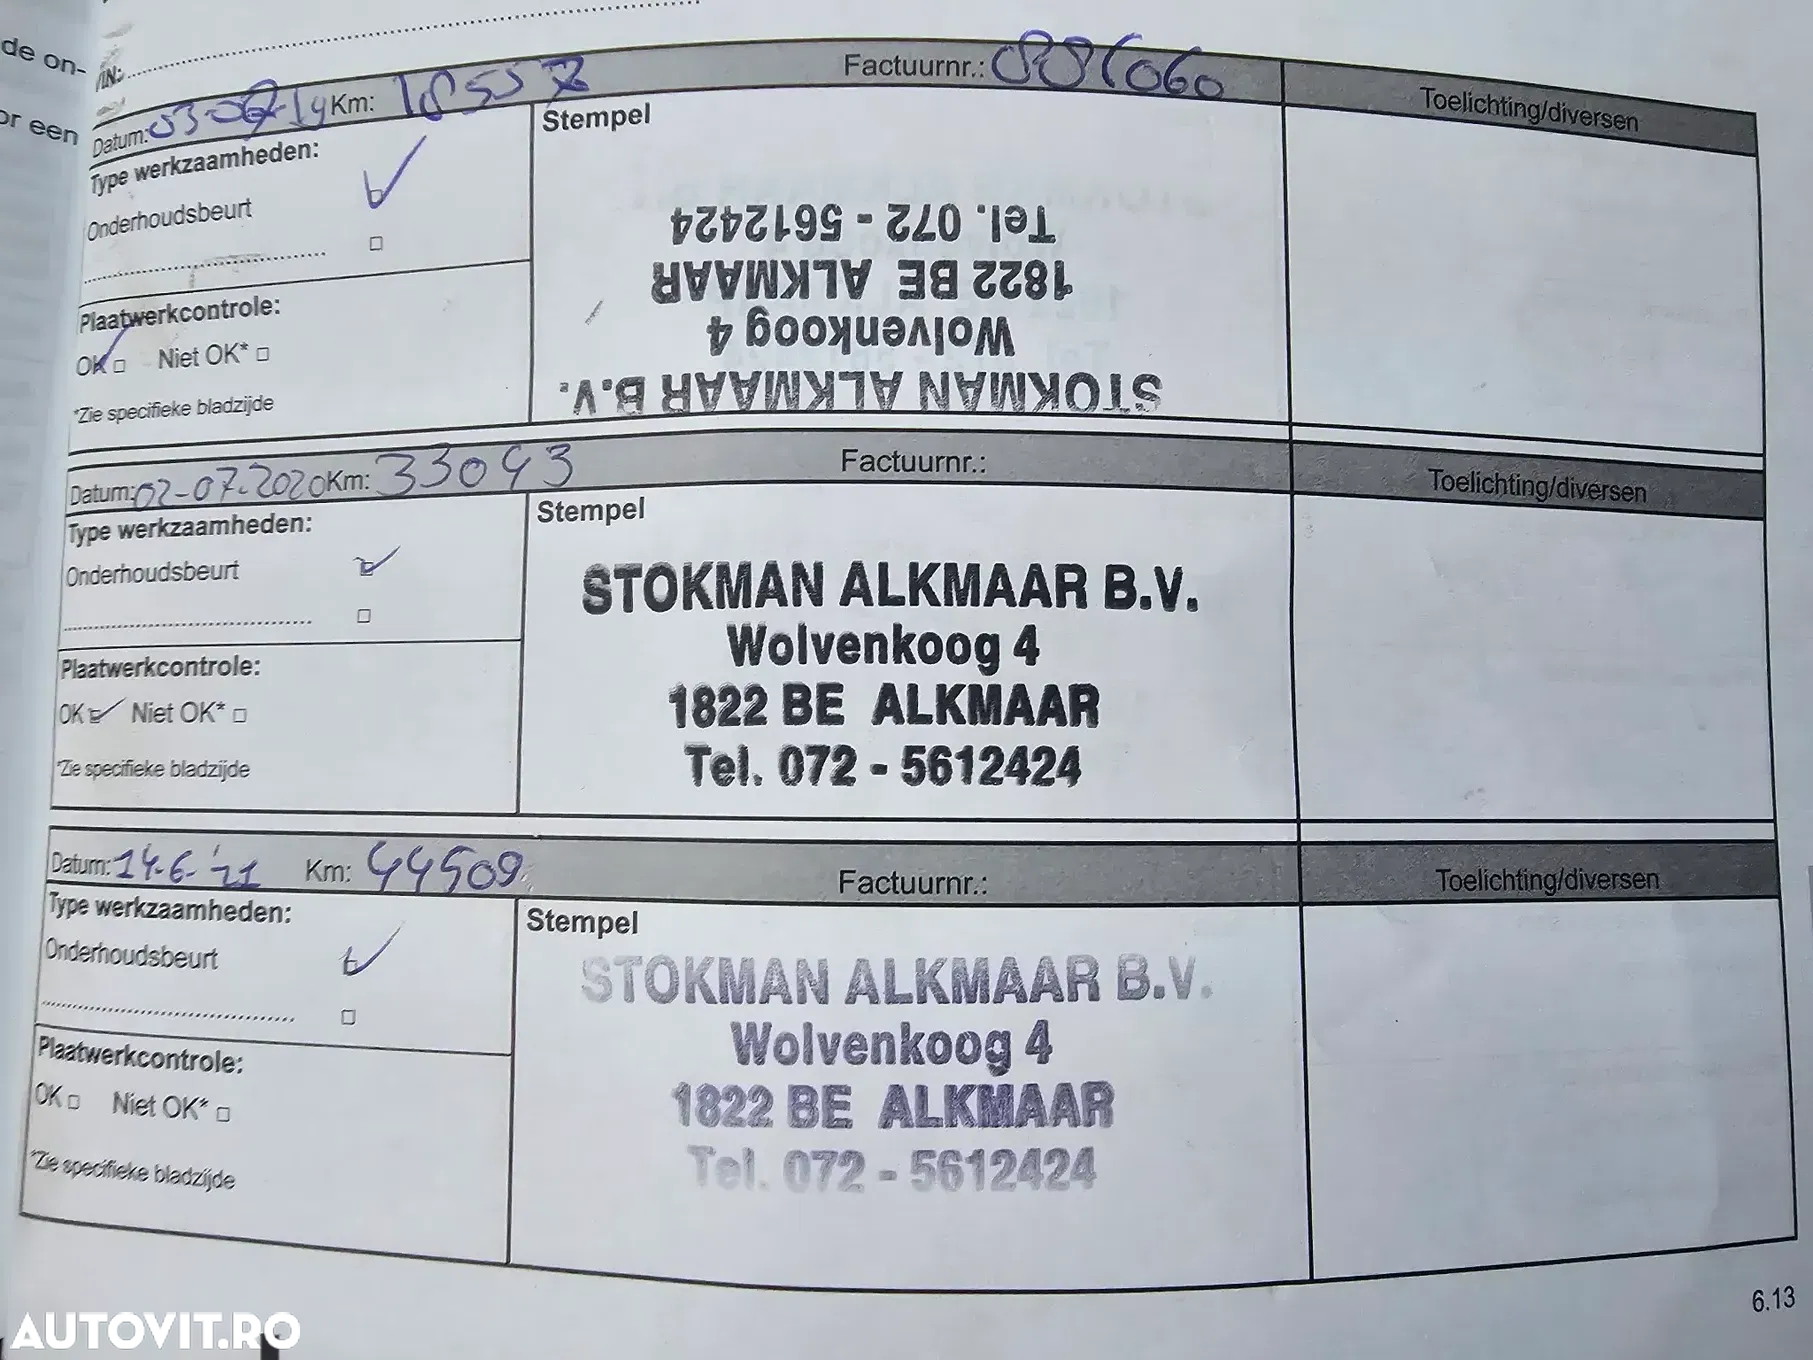 de on-
or een
VIN:
Datum: 03-06-19 Km: 18557 Factuurnr.: 0886060 Toelichting/diversen
Type werkzaamheden:
Onderhoudsbeurt
Plaatwerkcontrole:
OK Niet OK*
*Zie specifieke bladzijde
Stempel
STOKMAN ALKMAAR B.V.
Wolvenkoog 4
1822 BE ALKMAAR
Tel. 072 - 5612424
Datum: 02-07-2020 Km: 33093 Factuurnr.: Toelichting/diversen
Type werkzaamheden:
Onderhoudsbeurt
Plaatwerkcontrole:
OK Niet OK*
*Zie specifieke bladzijde
Stempel
STOKMAN ALKMAAR B.V.
Wolvenkoog 4
1822 BE ALKMAAR
Tel. 072 - 5612424
Datum: 14-6-'21 Km: 44509 Factuurnr.: Toelichting/diversen
Type werkzaamheden:
Onderhoudsbeurt
Plaatwerkcontrole:
OK Niet OK*
*Zie specifieke bladzijde
Stempel
STOKMAN ALKMAAR B.V.
Wolvenkoog 4
1822 BE ALKMAAR
Tel. 072 - 5612424
6.13
AUTOVIT.RO